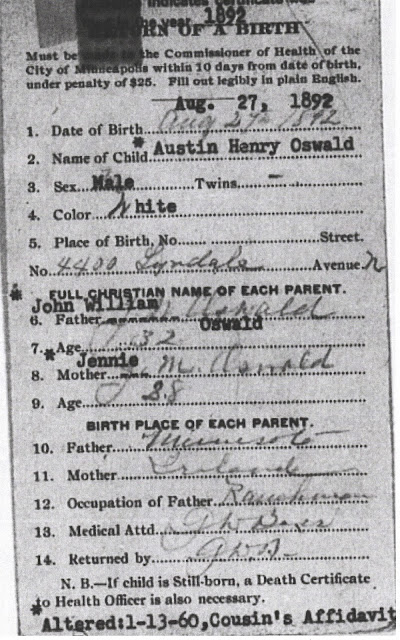 indicates certificate was
the year 1892
RETURN OF A BIRTH
Must be made to the Commissioner of Health of the
City of Minneapolis within 10 days from date of birth,
under penalty of $25. Fill out legibly in plain English.
Aug. 27, 1892
1. Date of Birth Aug 27th 1892
2. Name of Child *Austin Henry Oswald
3. Sex Male Twins -
4. Color White
5. Place of Birth, No. Street.
No. 4400 Lyndale Avenue. N
* FULL CHRISTIAN NAME OF EACH PARENT.
John William
6. Father Oswald
Oswald
7. Age 32
* Jennie
8. Mother M. Oswald
9. Age 28
BIRTH PLACE OF EACH PARENT.
10. Father Minnesota
11. Mother Ireland
12. Occupation of Father
13. Medical Attd.
14. Returned by
N. B.—If child is Still-born, a Death Certificate
to Health Officer is also necessary.
*Altered:1-13-60,Cousin's Affidavit